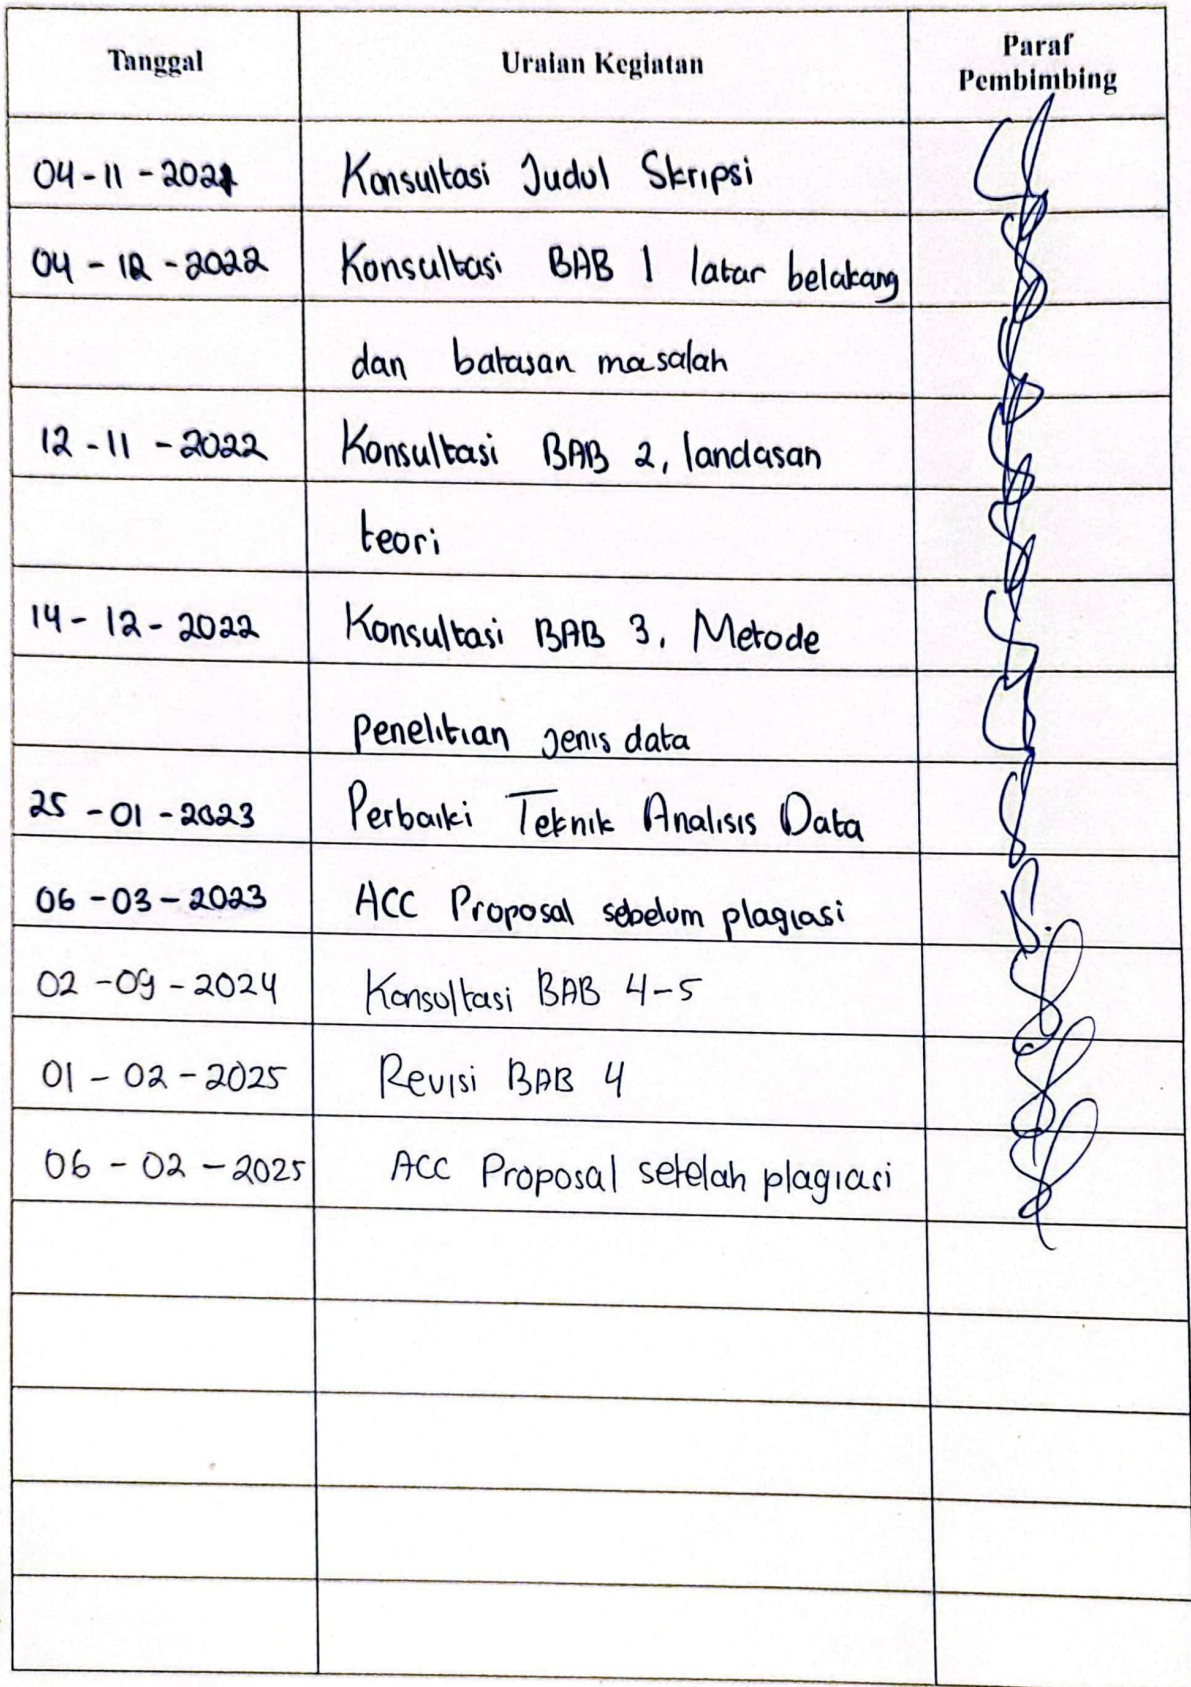 Tanggal Uraian Kegiatan Paraf Pembimbing
04-11-2021 Konsultasi Judul Skripsi
04-12-2022 Konsultasi BAB 1 latar belakang
dan batasan masalah
12-11-2022 Konsultasi BAB 2, landasan
teori
14-12-2022 Konsultasi BAB 3. Metode
penelitian jenis data
25-01-2023 Perbaiki Teknik Analisis Data
06-03-2023 ACC Proposal sebelum plagiasi
02-09-2024 Konsultasi BAB 4-5
01-02-2025 Revisi BAB 4
06-02-2025 ACC Proposal setelah plagiasi